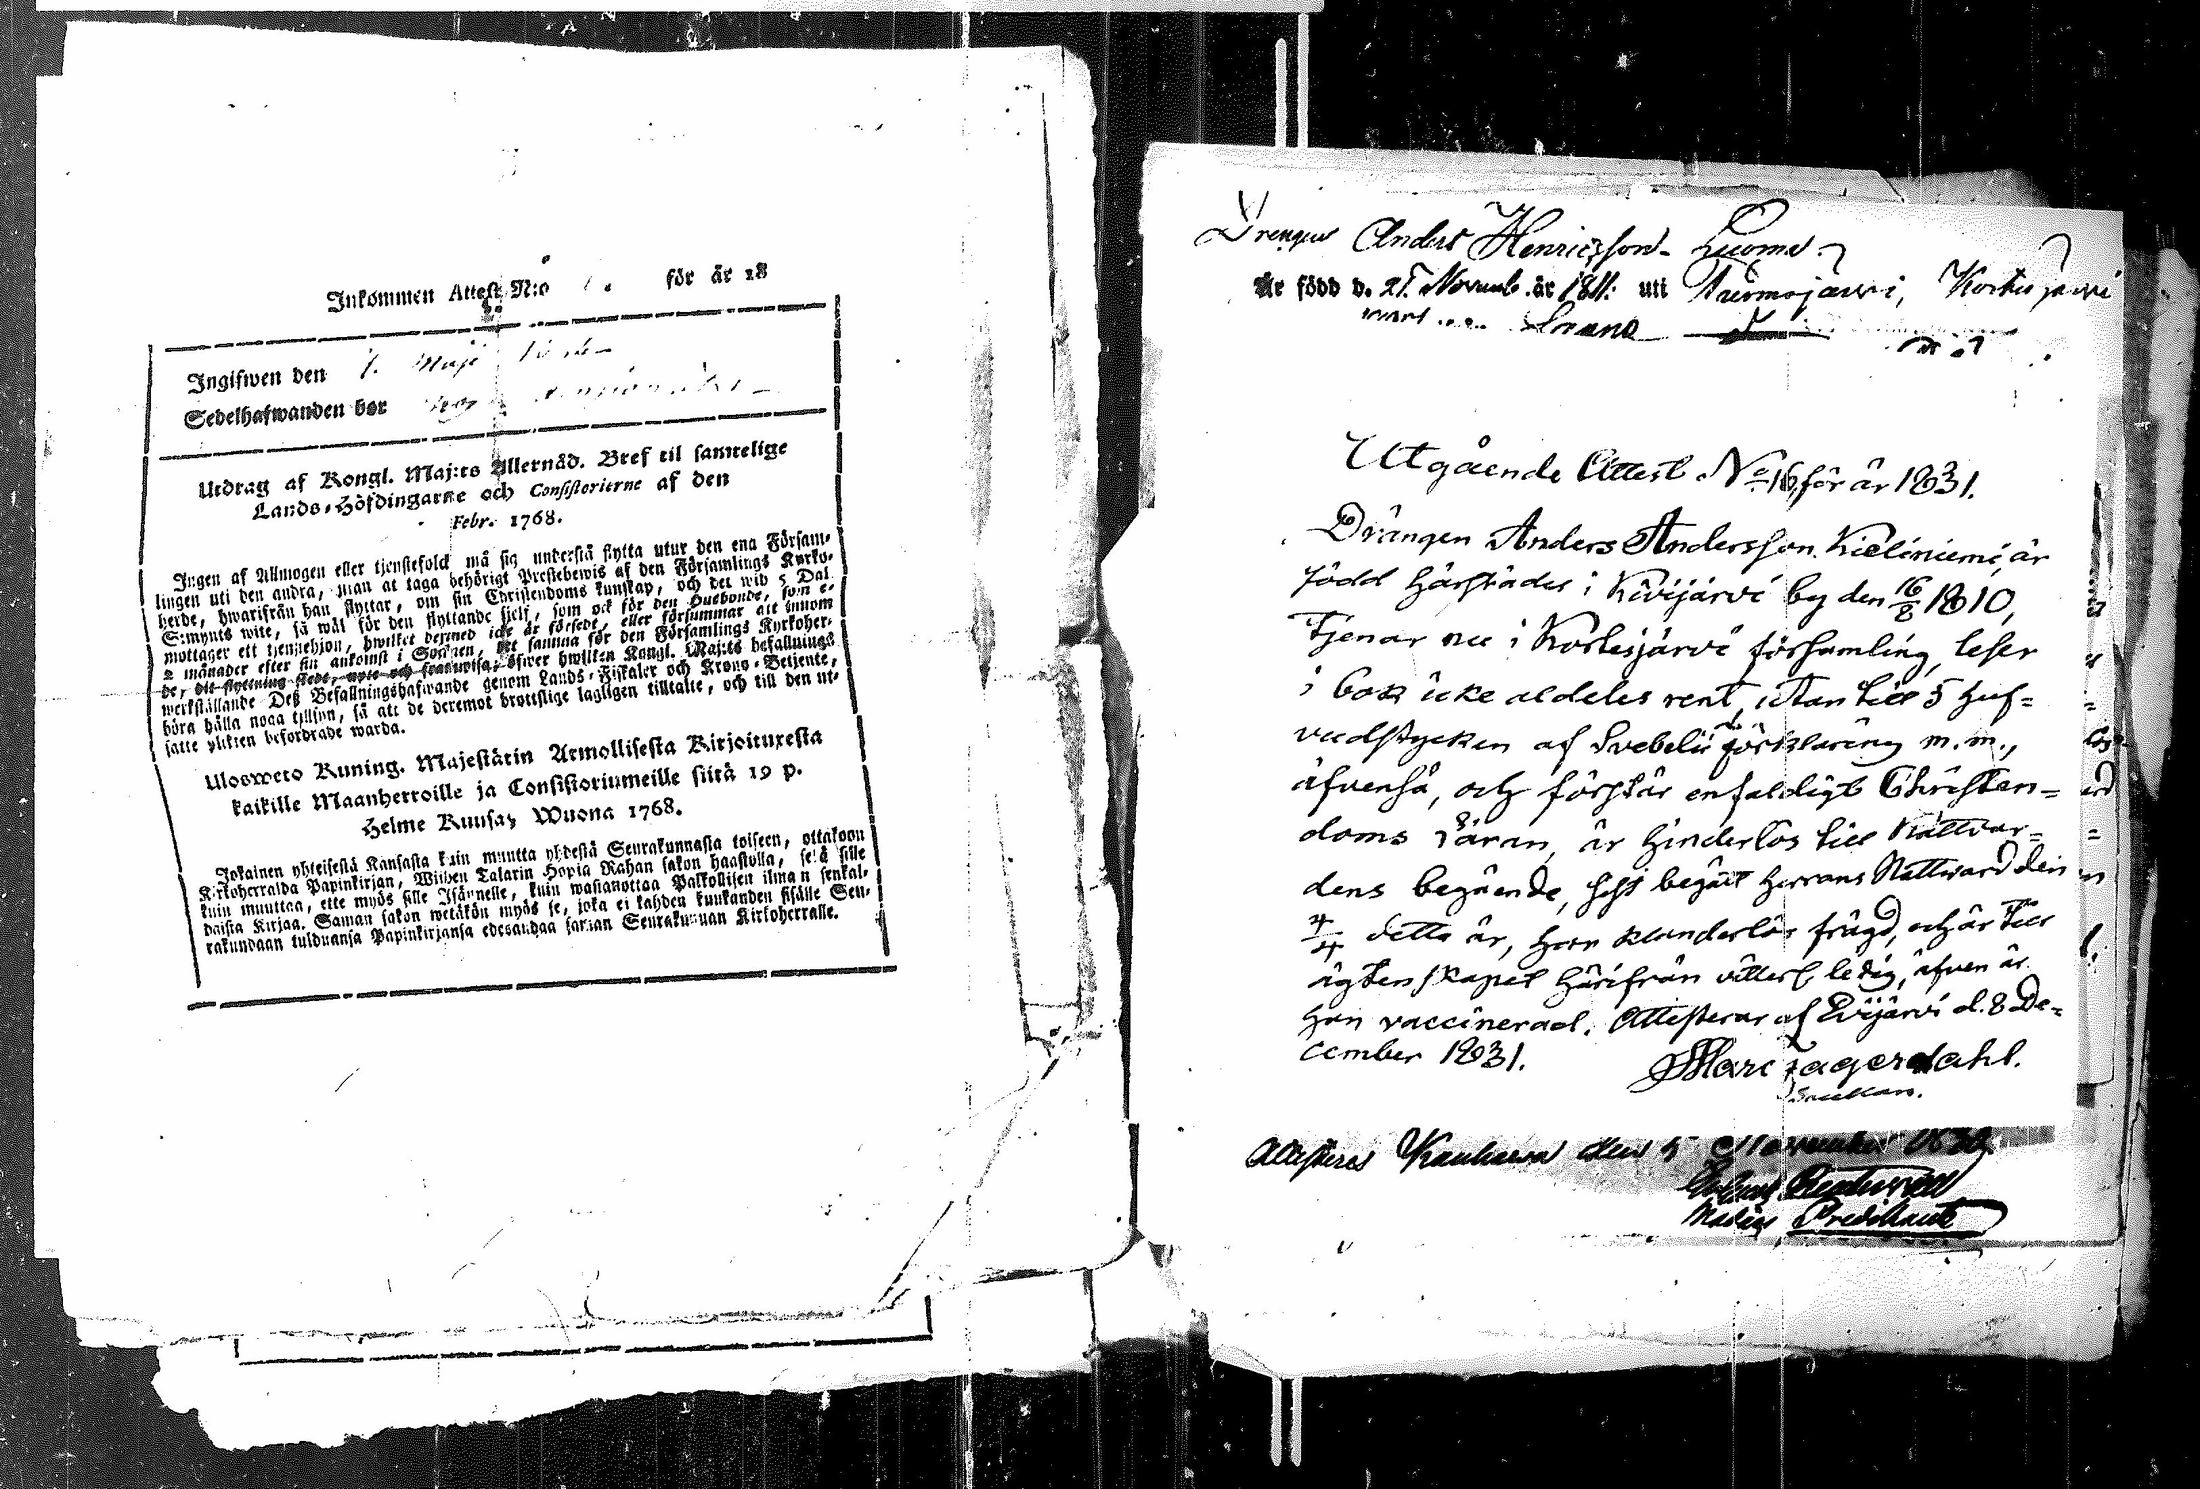 Inkommen Attest N:o för år 18
Ingifwen den 7. Maji
Sedelhafwanden bor
Utdrag af Kongl. Maj:ts Allernåd. Bref til samtelige
Lands-Höfdingarne och Consistorierne af den
Febr. 1768.
Ingen af Allmogen eller tjenstefolck må sig understå flytta utur den ena Försam-
lingen uti den andra, utan at taga behörigt Prestebewis af den Församlings Kyrko-
herde, hwarifrån han flyttar, om sin Christendoms kunskap, och det wid 5 Dal.
S:mynts wite, så wäl för den flyttande sielf, som ock för den Husbonde, som e-
mottager ett tjenstehjon, hwilket dermed icke är försedt, eller försummar att innom
2 månader efter sin ankomst i Socknen, det samma för den Församlings Kyrkoher-
de, dit flyttning skedt, upte och framwisa; öfwer hwilken Kongl. Maj:ts befallnings
werkställande Deß Befallningshafwande genom Lands-Fiskaler och Krono-Betjente,
böra hålla noga tillsyn, så att de deremot brottslige lagligen tilltalte, och till den ut-
satte plikten befordrade warda.
Ulosweto Kuning. Majestätin Armollisesta Kirjoituxesta
kaikille Maanherroille ja Consistoriumeille siitä 19 p.
Helme Kuusa, Wuona 1768.
Jokainen yhteisestä Kansasta kuin muutta yhdestä Seurakunnasta toiseen, ottakoon
Kirkoherralda Papinkirjan, Wiiden Talarin Hopia Rahan sakon haastolla, sekä sille
kuin muuttaa, ette myös sille Isännelle, kuin wastanottaa Palkollisen ilman senkal-
daista Kirjaa. Saman sakon wetäkön myös se, joka ei kahden kuukauden sisälle Seu-
rakundaan tulduansa Papinkirjansa edesandaa saman Seurakunnan Kirkoherralle.
Drengen Anders Henricsson Luoma
Är född d. 21 Novemb. år 1811. uti Purmojärvi, Kortesjärvi
Utgående Attest No 16, för år 1831.
Drängen Anders Andersson Kieliniemi, är
född härstädes i Kivijärvi by den 16/8 1810,
tjenar nu i Kortesjärvi församling, leser
i bok icke aldeles rent, utan till 5 huf-
vudstycken af Svebelii förklaring m.m.,
äfvenså, och förstår enfaldigt Christen-
doms läran, är hinderlös till Nattvar-
dens begående, sist begått Herrans Nattward den
4/4 detta år, har klanderlös frägd, och är till
ägtenskapet härifrån vitterl. ledig, äfven är
han vaccinerad. Attesterar af Evijärvi d. 8 De-
cember 1831.
Marc Lagerdahl.
Attesteras Kauhava den 5 November